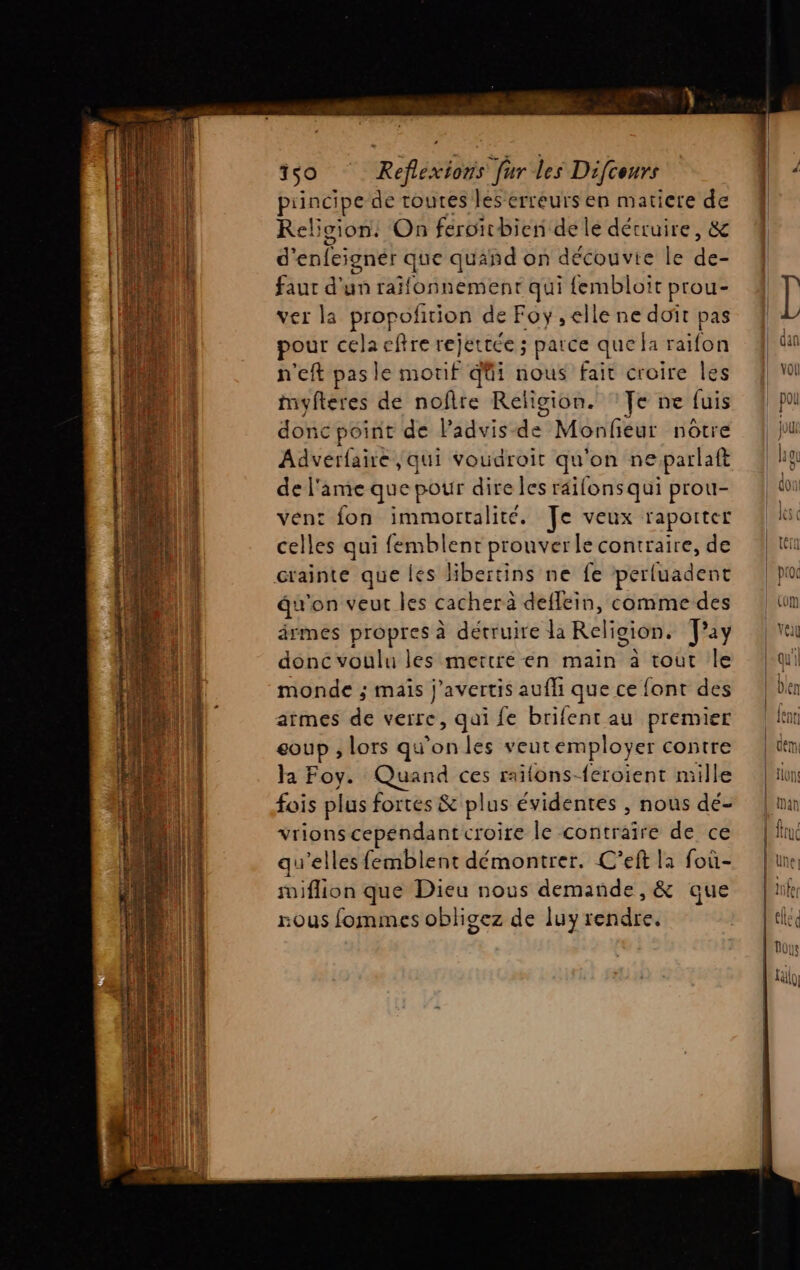 150 Reflexions ſur les Diſcours
principe de toutes les erreurs en matiere de
Religion. On feroit bien de le détruire, &
d'enſeigner que quand on découvre le de-
faut d'un raiſonnement qui ſembloit prou-
ver la propoſition de Foy, elle ne doit pas
pour cela eſtre rejettée; parce que la raiſon
n'eſt pas le motif qui nous fait croire les
myſteres de noſtre Religion. Je ne ſuis
donc point de l'advis de Monſieur nôtre
Adverſaire, qui voudroit qu'on ne parlaſt
de l'ame que pour dire les raiſons qui prou-
vent ſon immortalité. Je veux raporter
celles qui ſemblent prouver le contraire, de
crainte que les libertins ne ſe perſuadent
qu'on veut les cacher à deſſein, comme des
armes propres à détruire la Religion. J'ay
donc voulu les mettre en main à tout le
monde; mais j'avertis auſſi que ce ſont des
armes de verre, qui ſe briſent au premier
coup, lors qu'on les veut employer contre
la Foy. Quand ces raiſons ſeroient mille
fois plus fortes & plus évidentes, nous dé-
vrions cependant croire le contraire de ce
qu'elles ſemblent démontrer. C'eſt la ſoû-
miſſion que Dieu nous demande, & que
nous ſommes obligez de luy rendre.
D
dan
vou
pou
jour
don
les c
proc
com
qu'il
bien
dem
man
une